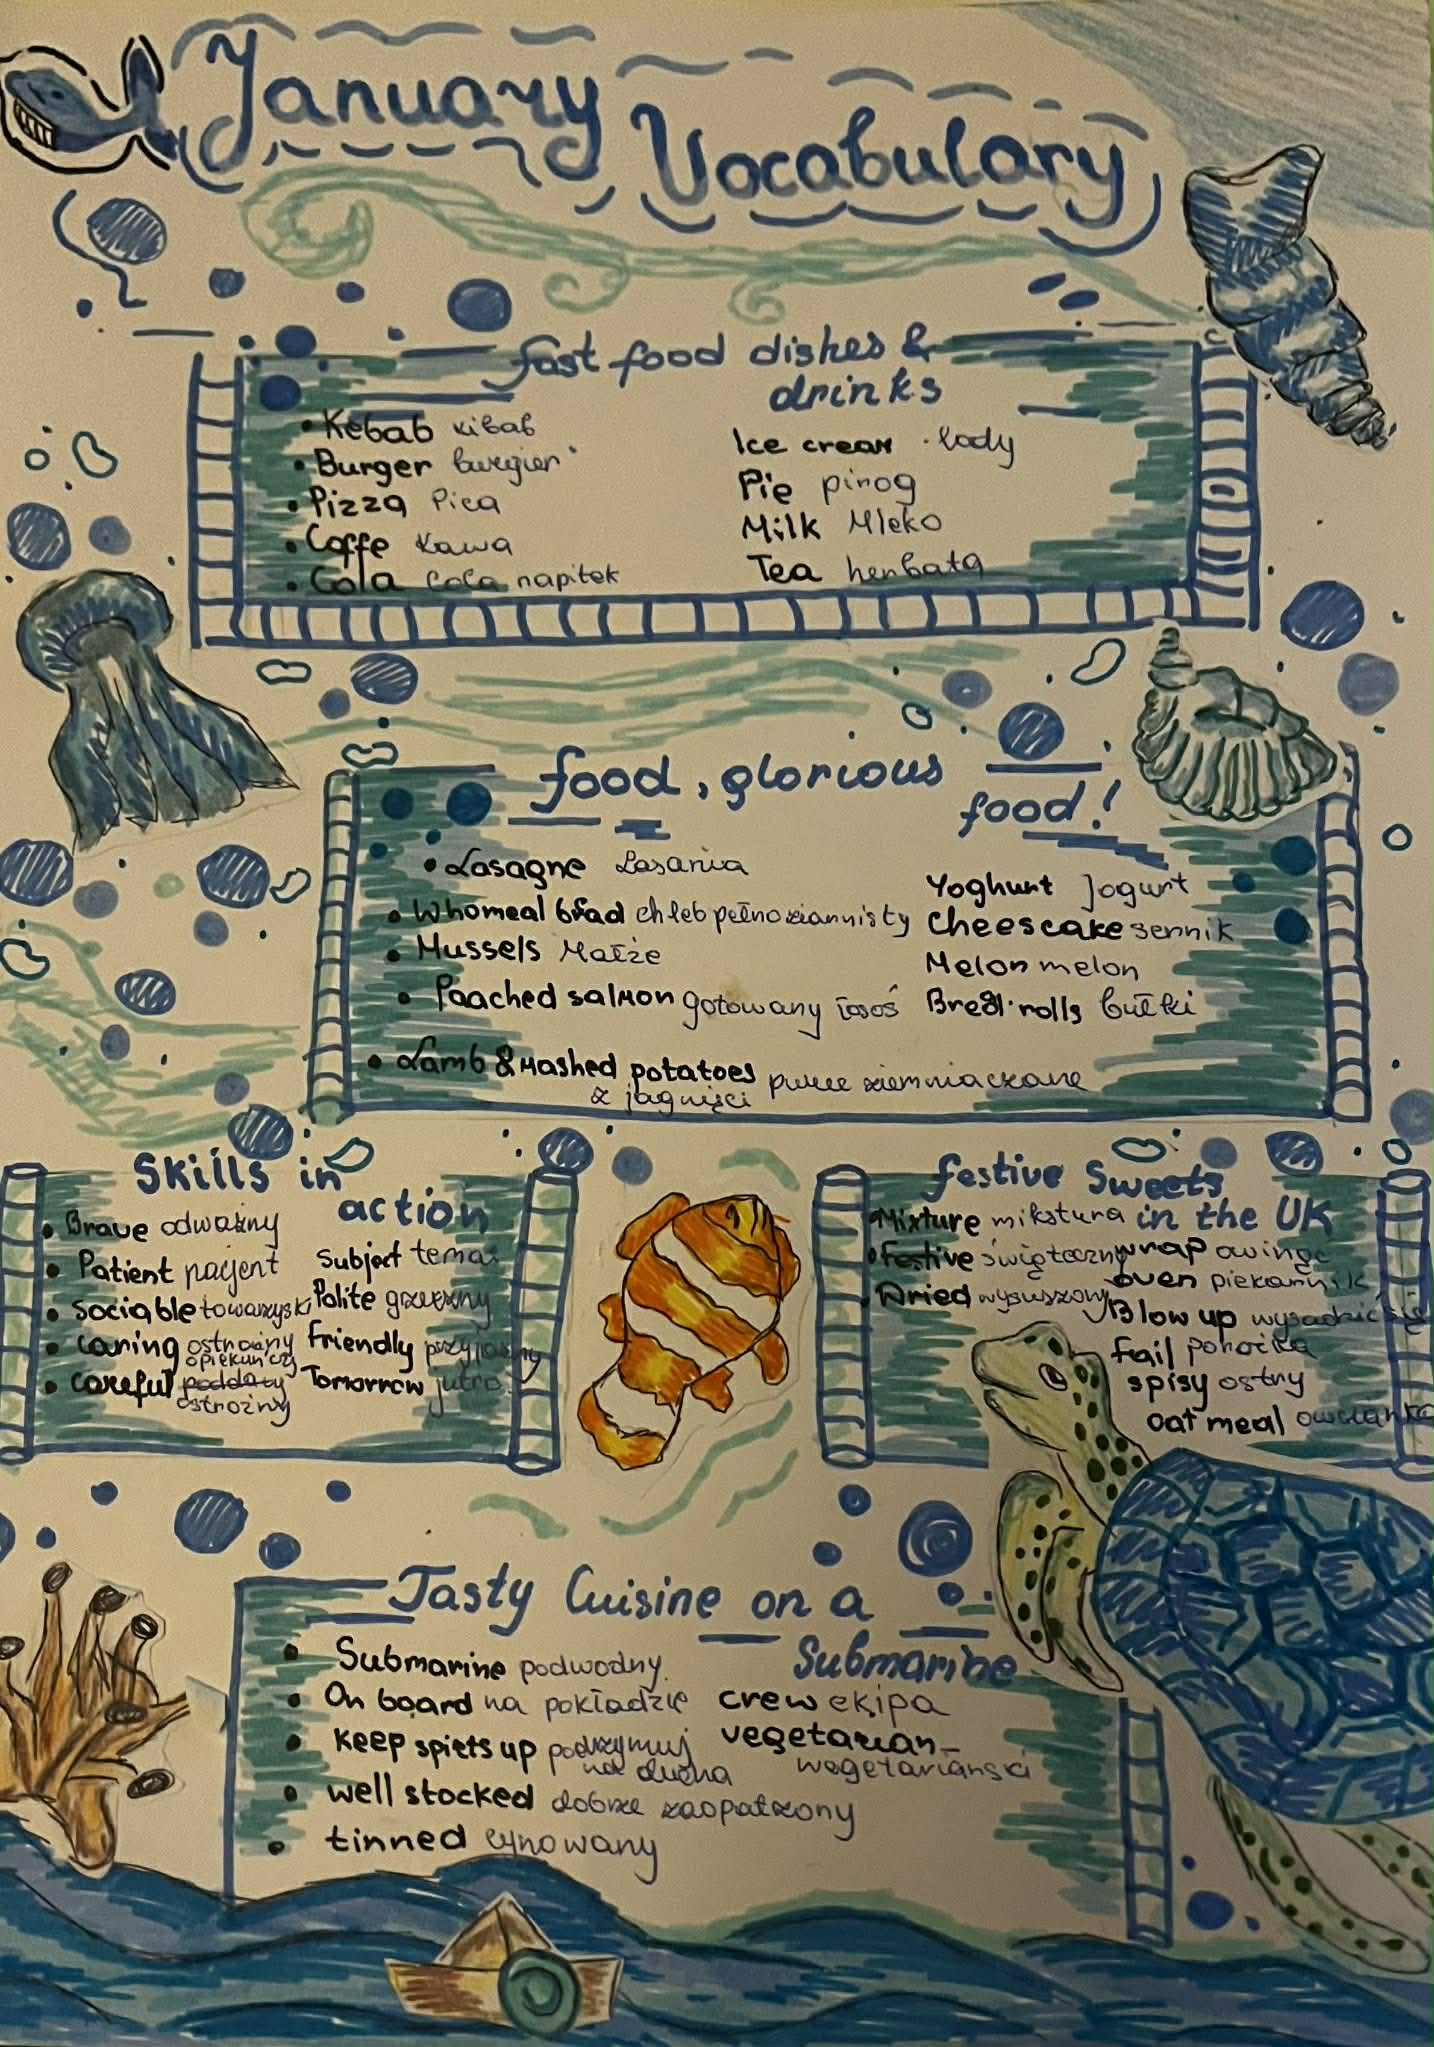 January
Vocabulary
fast food dishes &
drinks
Kebab kibab
Burger burgier
Pizza Pica
Coffe Kawa
Cola Cola napitek
Ice cream lody
Pie pirog
Milk Mleko
Tea herbata
food, glorious
food!
Lasagne Lasania
Whomeal bread chleb pełnoziarnnisty
Mussels Małże
Poached salmon gotowany łosoś
Lamb & Mashed potatoes puree ziemniaczane
z jagnięci
Yoghurt Jogurt
Cheescake sernik
Melon melon
Bread rolls bułki
Skills in
action
Brave odważny
Patient pacjent
Sociable towarzyski
Caring ostrożny
opiekuńczy
Careful poddaty
ostrożny
Subject temat
Polite grzeczny
Friendly przyjazny
Tomorrow jutro
festive Sweets
in the UK
Mixture mikstura
festive świąteczny
Dried wysuszony
wrap owinąć
oven piekarnik
Blow up wysadzić się
fail porażka
spisy ostry
oat meal owsianka
Tasty Cuisine on a
Submarine
Submarine podwodny
On board na pokładzie
keep spirits up podtrzymuj
na duchu
well stocked dobrze zaopatrzony
tinned cynowany
crew ekipa
vegetarian
wegetariański